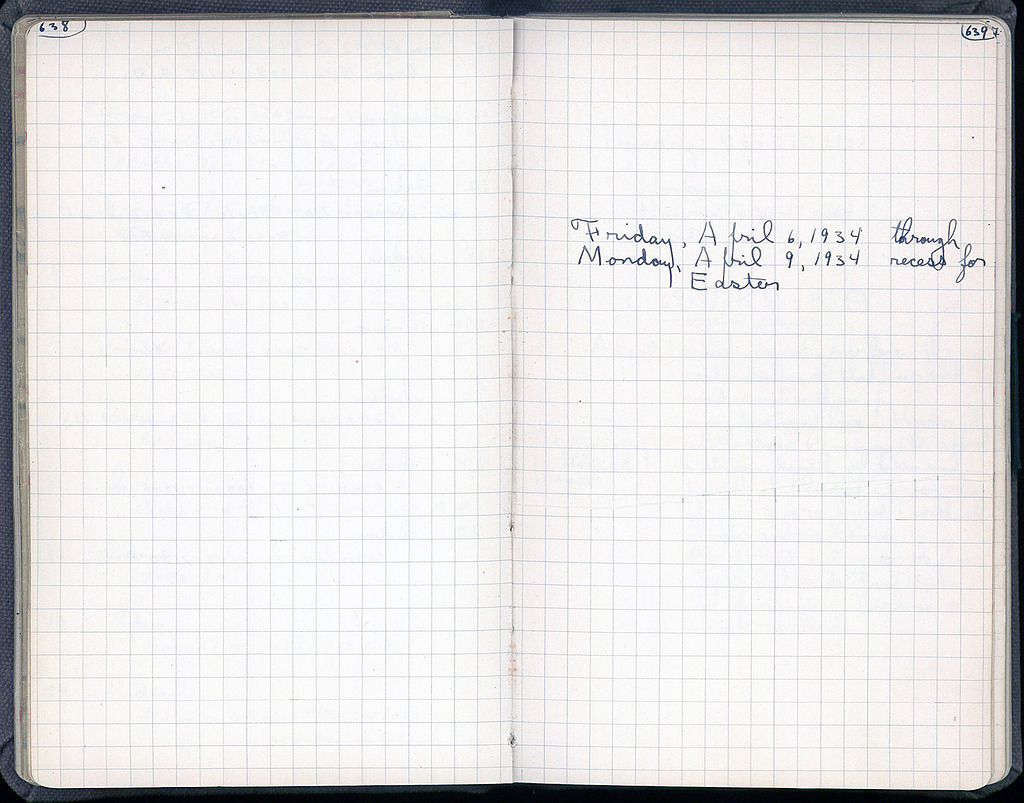 638
639
Friday, April 6, 1934 through
Monday, April 9, 1934 recess for
Easter